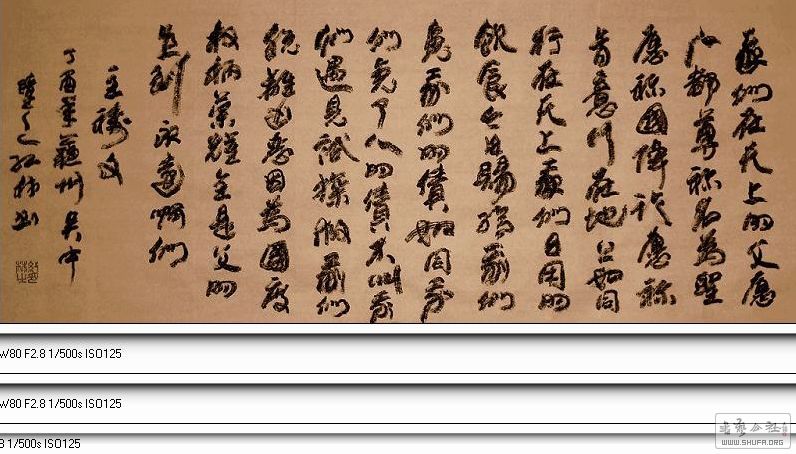 我们在天上的父愿
人都尊祢名為聖
愿祢國降臨愿祢
旨意行在地上如同
行在天上我们日用的
飲食今日賜給我们
免我们的債如同我
们免了人的債不叫我
们遇見試探救我们
脫離凶惡因為國度
权柄榮耀全是父的
直到永遠啊们
主禱文
丁酉 蘇州吳中
W80 F2.8 1/500s ISO125
W80 F2.8 1/500s ISO125
8 1/500s ISO125
WWW.SHUFA.ORG